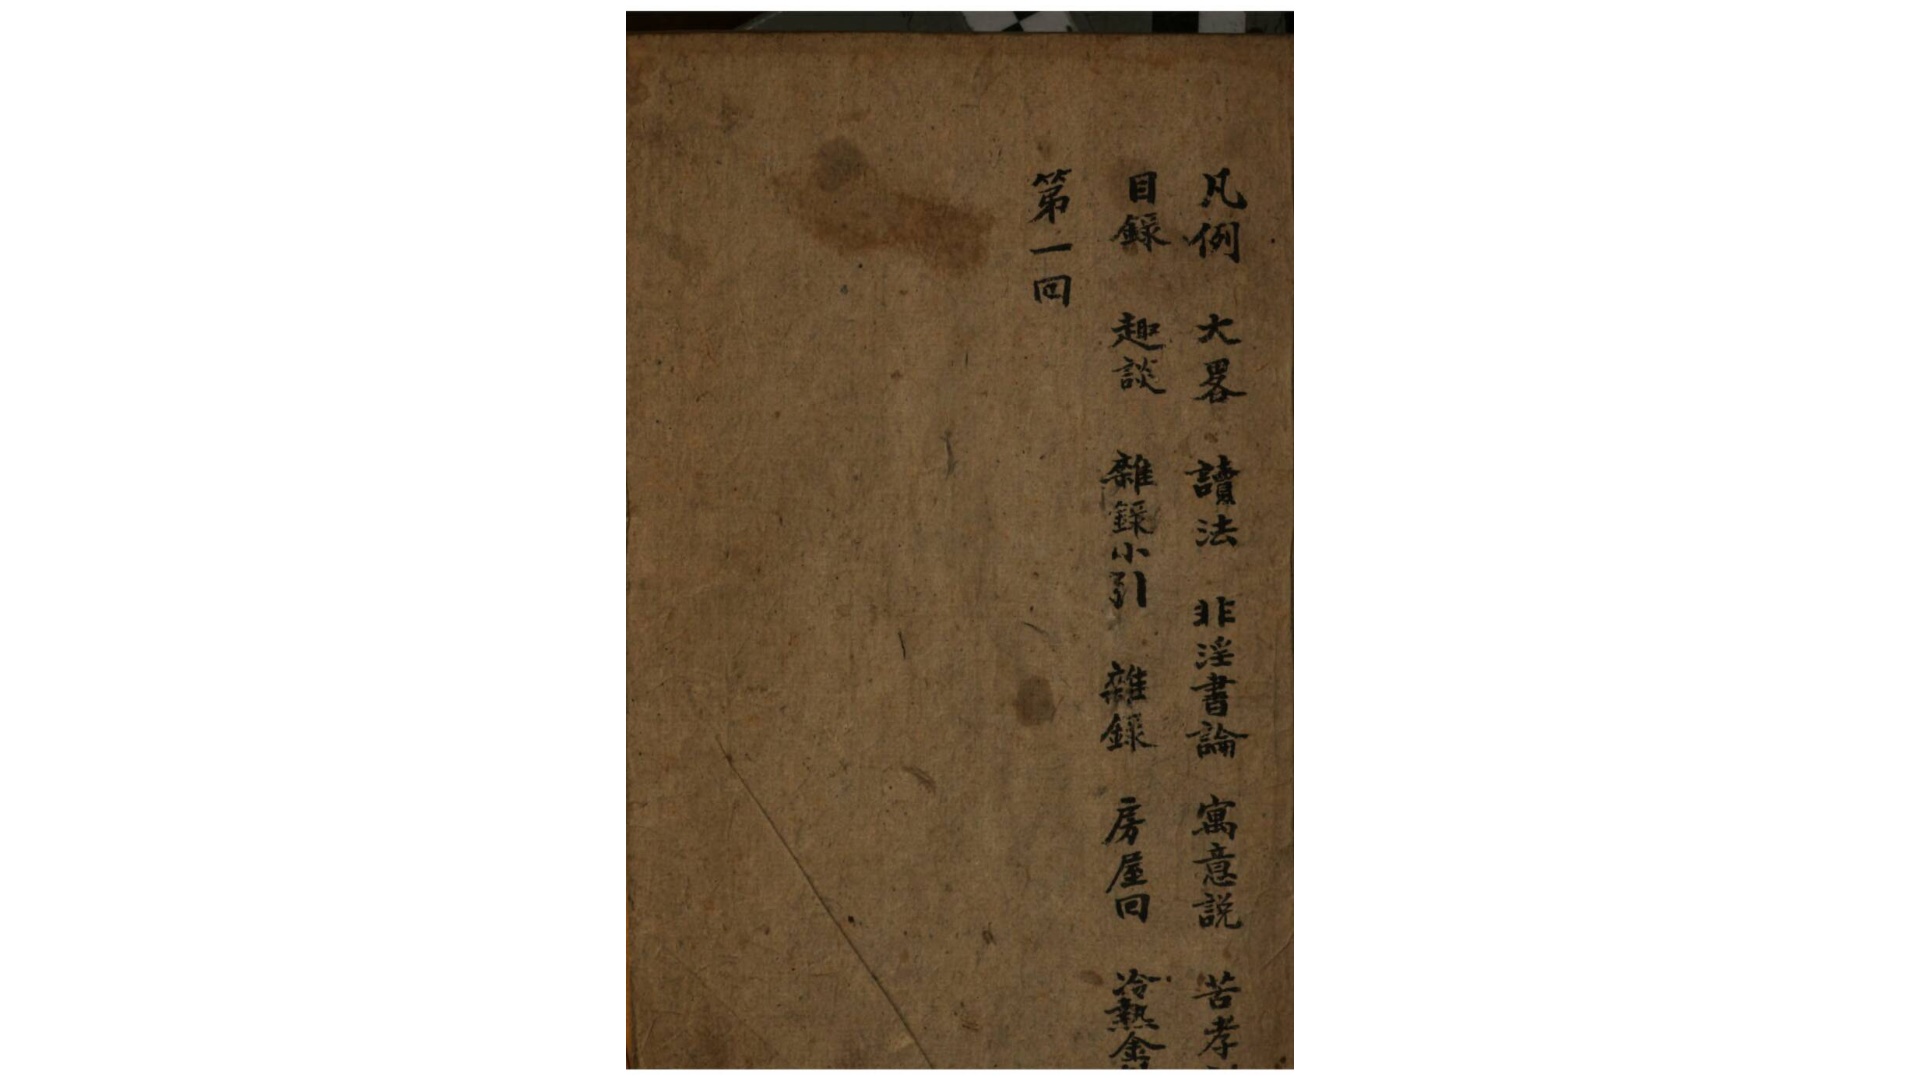 凡例 大畧 讀法 非淫書論 寓意説 苦孝
目錄 趣談 雜錄小引 雜錄 房屋回 冷熱金
第一回